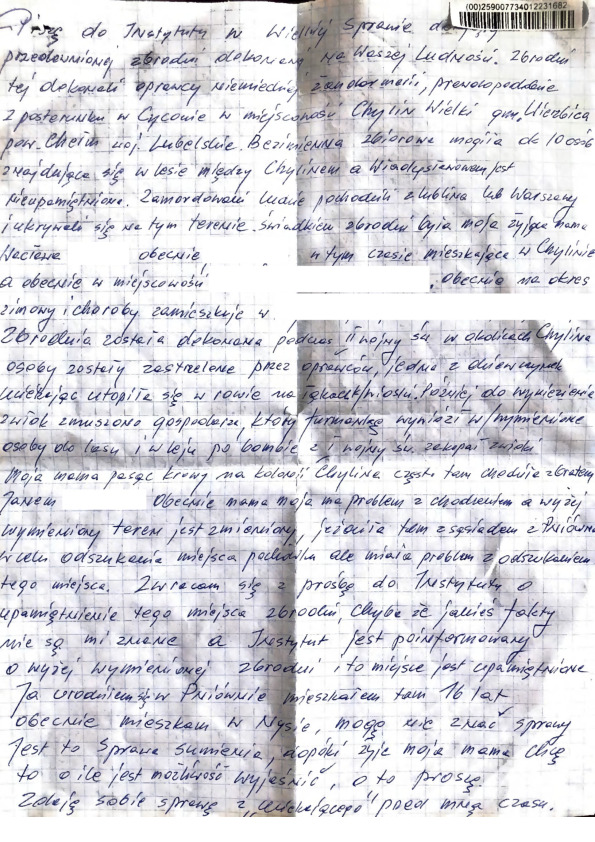 (00)259007734012231682
Piszę do Instytutu w Wielkiej Sprawie do tej
przedawnionej zbrodni dokonanej na Waszej Ludności. Zbrodni
tej dokonali oprawcy niemieckiej żandarmerii, prawdopodobnie
z posterunku w Cycowie w miejscowości Chylin Wielki gm. Wierzbica
pow. Chełm woj. Lubelskie. Bezimienna zbiorowa mogiła ok 10 osób
znajdująca się w lesie między Chylinem a Władysławowem jest
nieupamiętniona. Zamordowani ludzie pochodzili z lublina lub Warszawy
i ukrywali się na tym terenie. Świadkiem zbrodni była moja żyjąca mama
Wacława obecnie w tym czasie mieszkająca w Chylinie
a obecnie w miejscowości , obecnie na okres
zimowy i choroby zamieszkuje w
Zbrodnia została dokonana podczas II wojny św w okolicach Chylina
osoby zostały zastrzelone przez oprawców, jedna z dziewczynek
uciekając utopiła się w rowie na łąkach Później do wywiezienia
zwłok zmuszono gospodarza, który furmanką wywiózł w/wymienione
osoby do lasu i w leju po bombie z I wojny św. zakopał zwłoki
Moja mama pasąc krowy na kolonii Chylina często tam chodziła z bratem
Janem Obecnie mama moja ma problem z chodzeniem a wyżej
wymieniony teren jest zmieniony, jeździła tam z sąsiadem z Pniówna
w celu odszukania miejsca pochówku ale miała problem z odszukaniem
tego miejsca. Zwracam się z prośbą do Instytutu o
upamiętnienie tego miejsca zbrodni, chyba że jakieś fakty
nie są mi znane a Instytut jest poinformowany
o wyżej wymienionej zbrodni i to miejsce jest upamiętnione
Ja urodziłem się w Pniównie mieszkałem tam 16 lat
obecnie mieszkam w Nysie, mogę nie znać sprawy
Jest to sprawa sumienia, dopóki żyje moja mama chcę
to o ile jest możliwość wyjaśnić, o to proszę.
Zdaję sobie sprawę z "uciekającego" przed mną czasu.